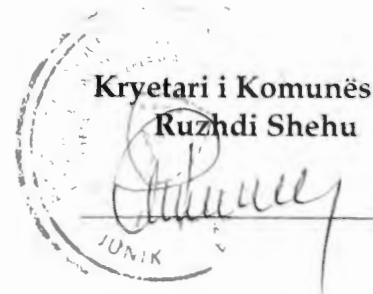 Kryetari i Komunës
Ruzhdi Shehu
JUNIK